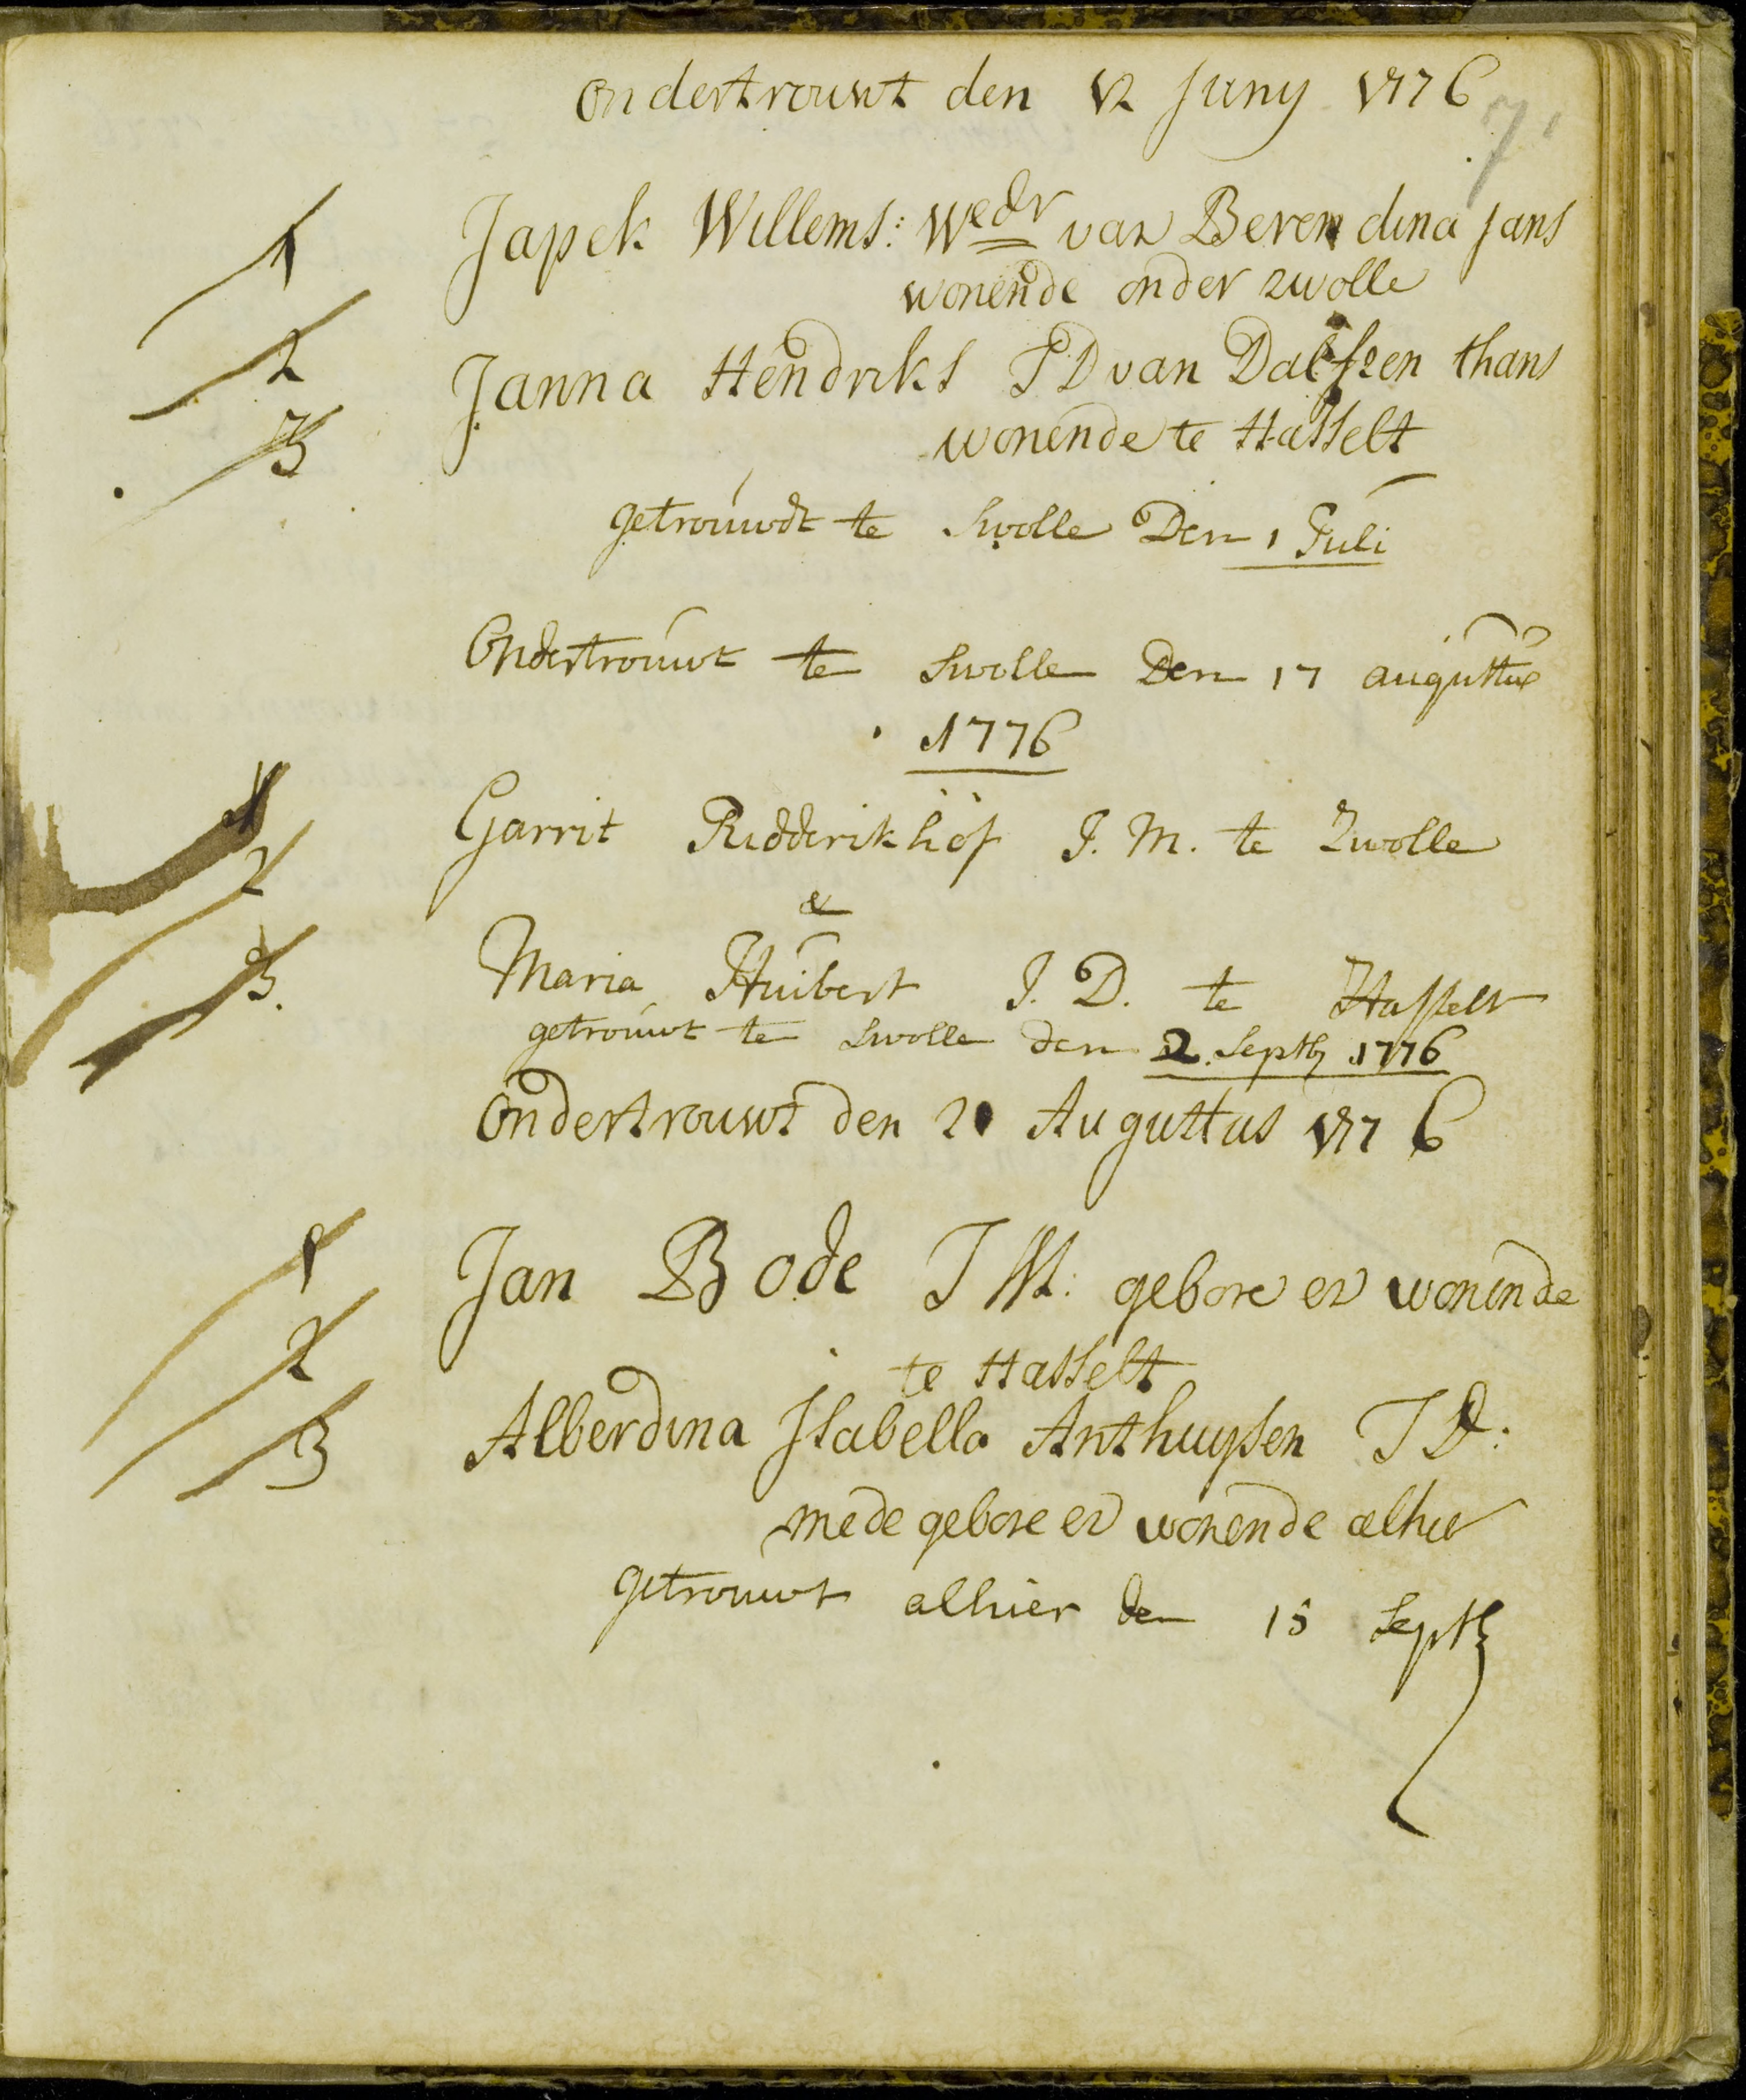 Ondertrouwt den 12 Juny 1776
7
1
Japek Willems: Wedr van Berendina Jans
wonende onder zwolle
2
Janna Hendriks J D van Dalfzen thans
3
wonende te Hasselt
getrouwdt te Swolle Den 1 Juli
Ondertrouwt te Swolle Den 17 augustus
1776
1
Garrit Ridderikhof J. M. te Zwolle
2
&
3
Maria Huibert J. D. te Hasselt
getrouwt te Swolle den 2. Septb 1776
Ondertrouwt den 20 Augustus 1776
1
Jan Bode J M: gebore en wonende
2
te Hasselt
3
Alberdina Isabella Anthuysen J D:
mede gebore en wonende alhier
getrouwt alhier den 15 Septb